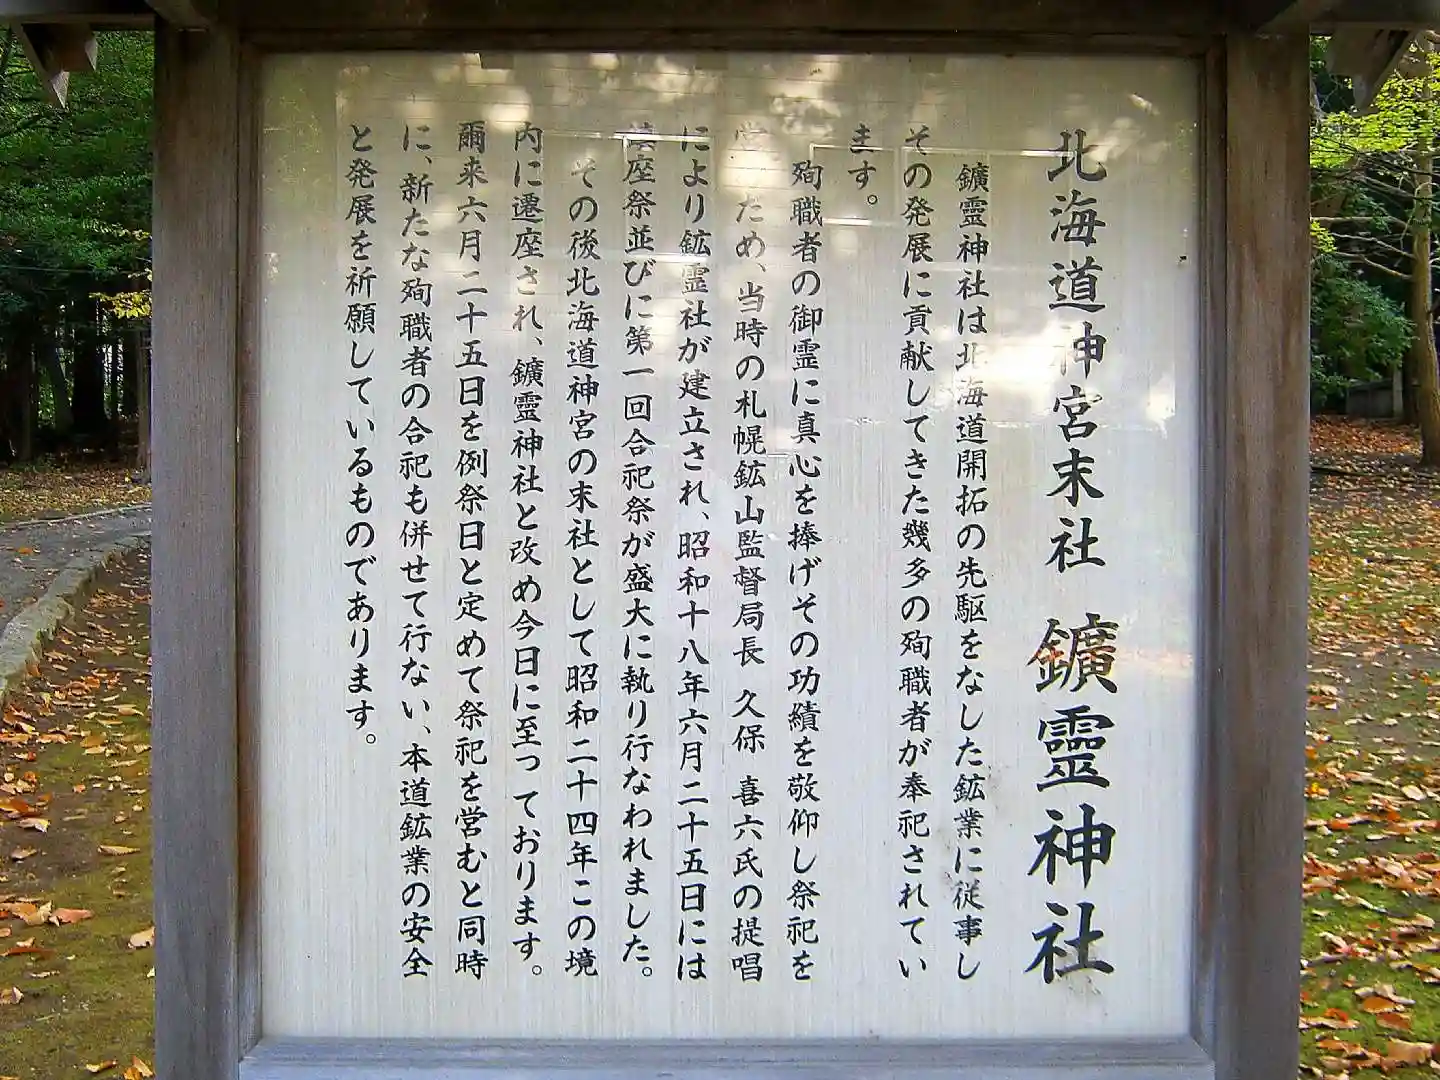 北海道神宮末社 鑛靈神社
鑛靈神社は北海道開拓の先駆をなした鉱業に従事し
その発展に貢献してきた幾多の殉職者が奉祀されてい
ます。
殉職者の御霊に真心を捧げその功績を敬仰し祭祀を
営むため、当時の札幌鉱山監督局長 久保 喜六氏の提唱
により鉱霊社が建立され、昭和十八年六月二十五日には
鎮座祭並びに第一回合祀祭が盛大に執り行なわれました。
その後北海道神宮の末社として昭和二十四年この境
内に遷座され、鑛靈神社と改め今日に至っております。
爾来六月二十五日を例祭日と定めて祭祀を営むと同時
に、新たな殉職者の合祀も併せて行ない、本道鉱業の安全
と発展を祈願しているものであります。